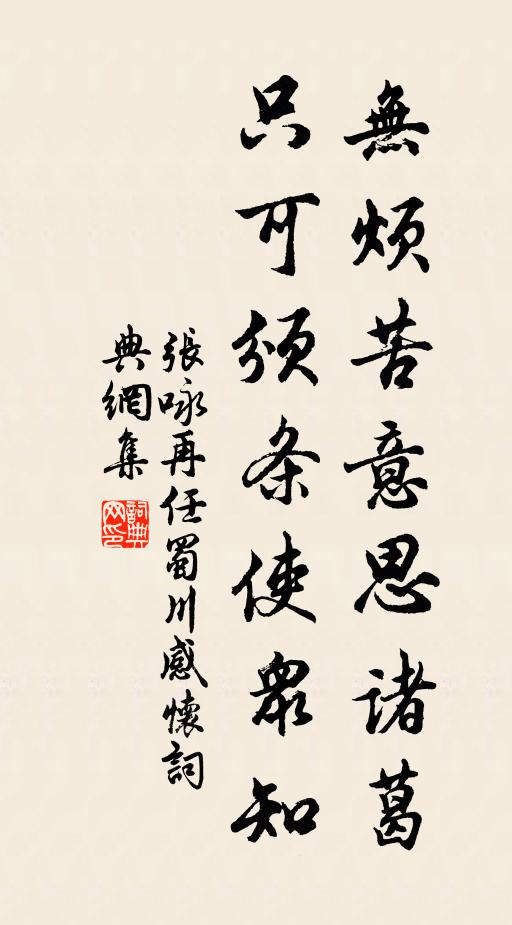 無煩苦意思諸葛
只可頒条使眾知
張咏再任蜀川感懷詞
典網集
詞典网印